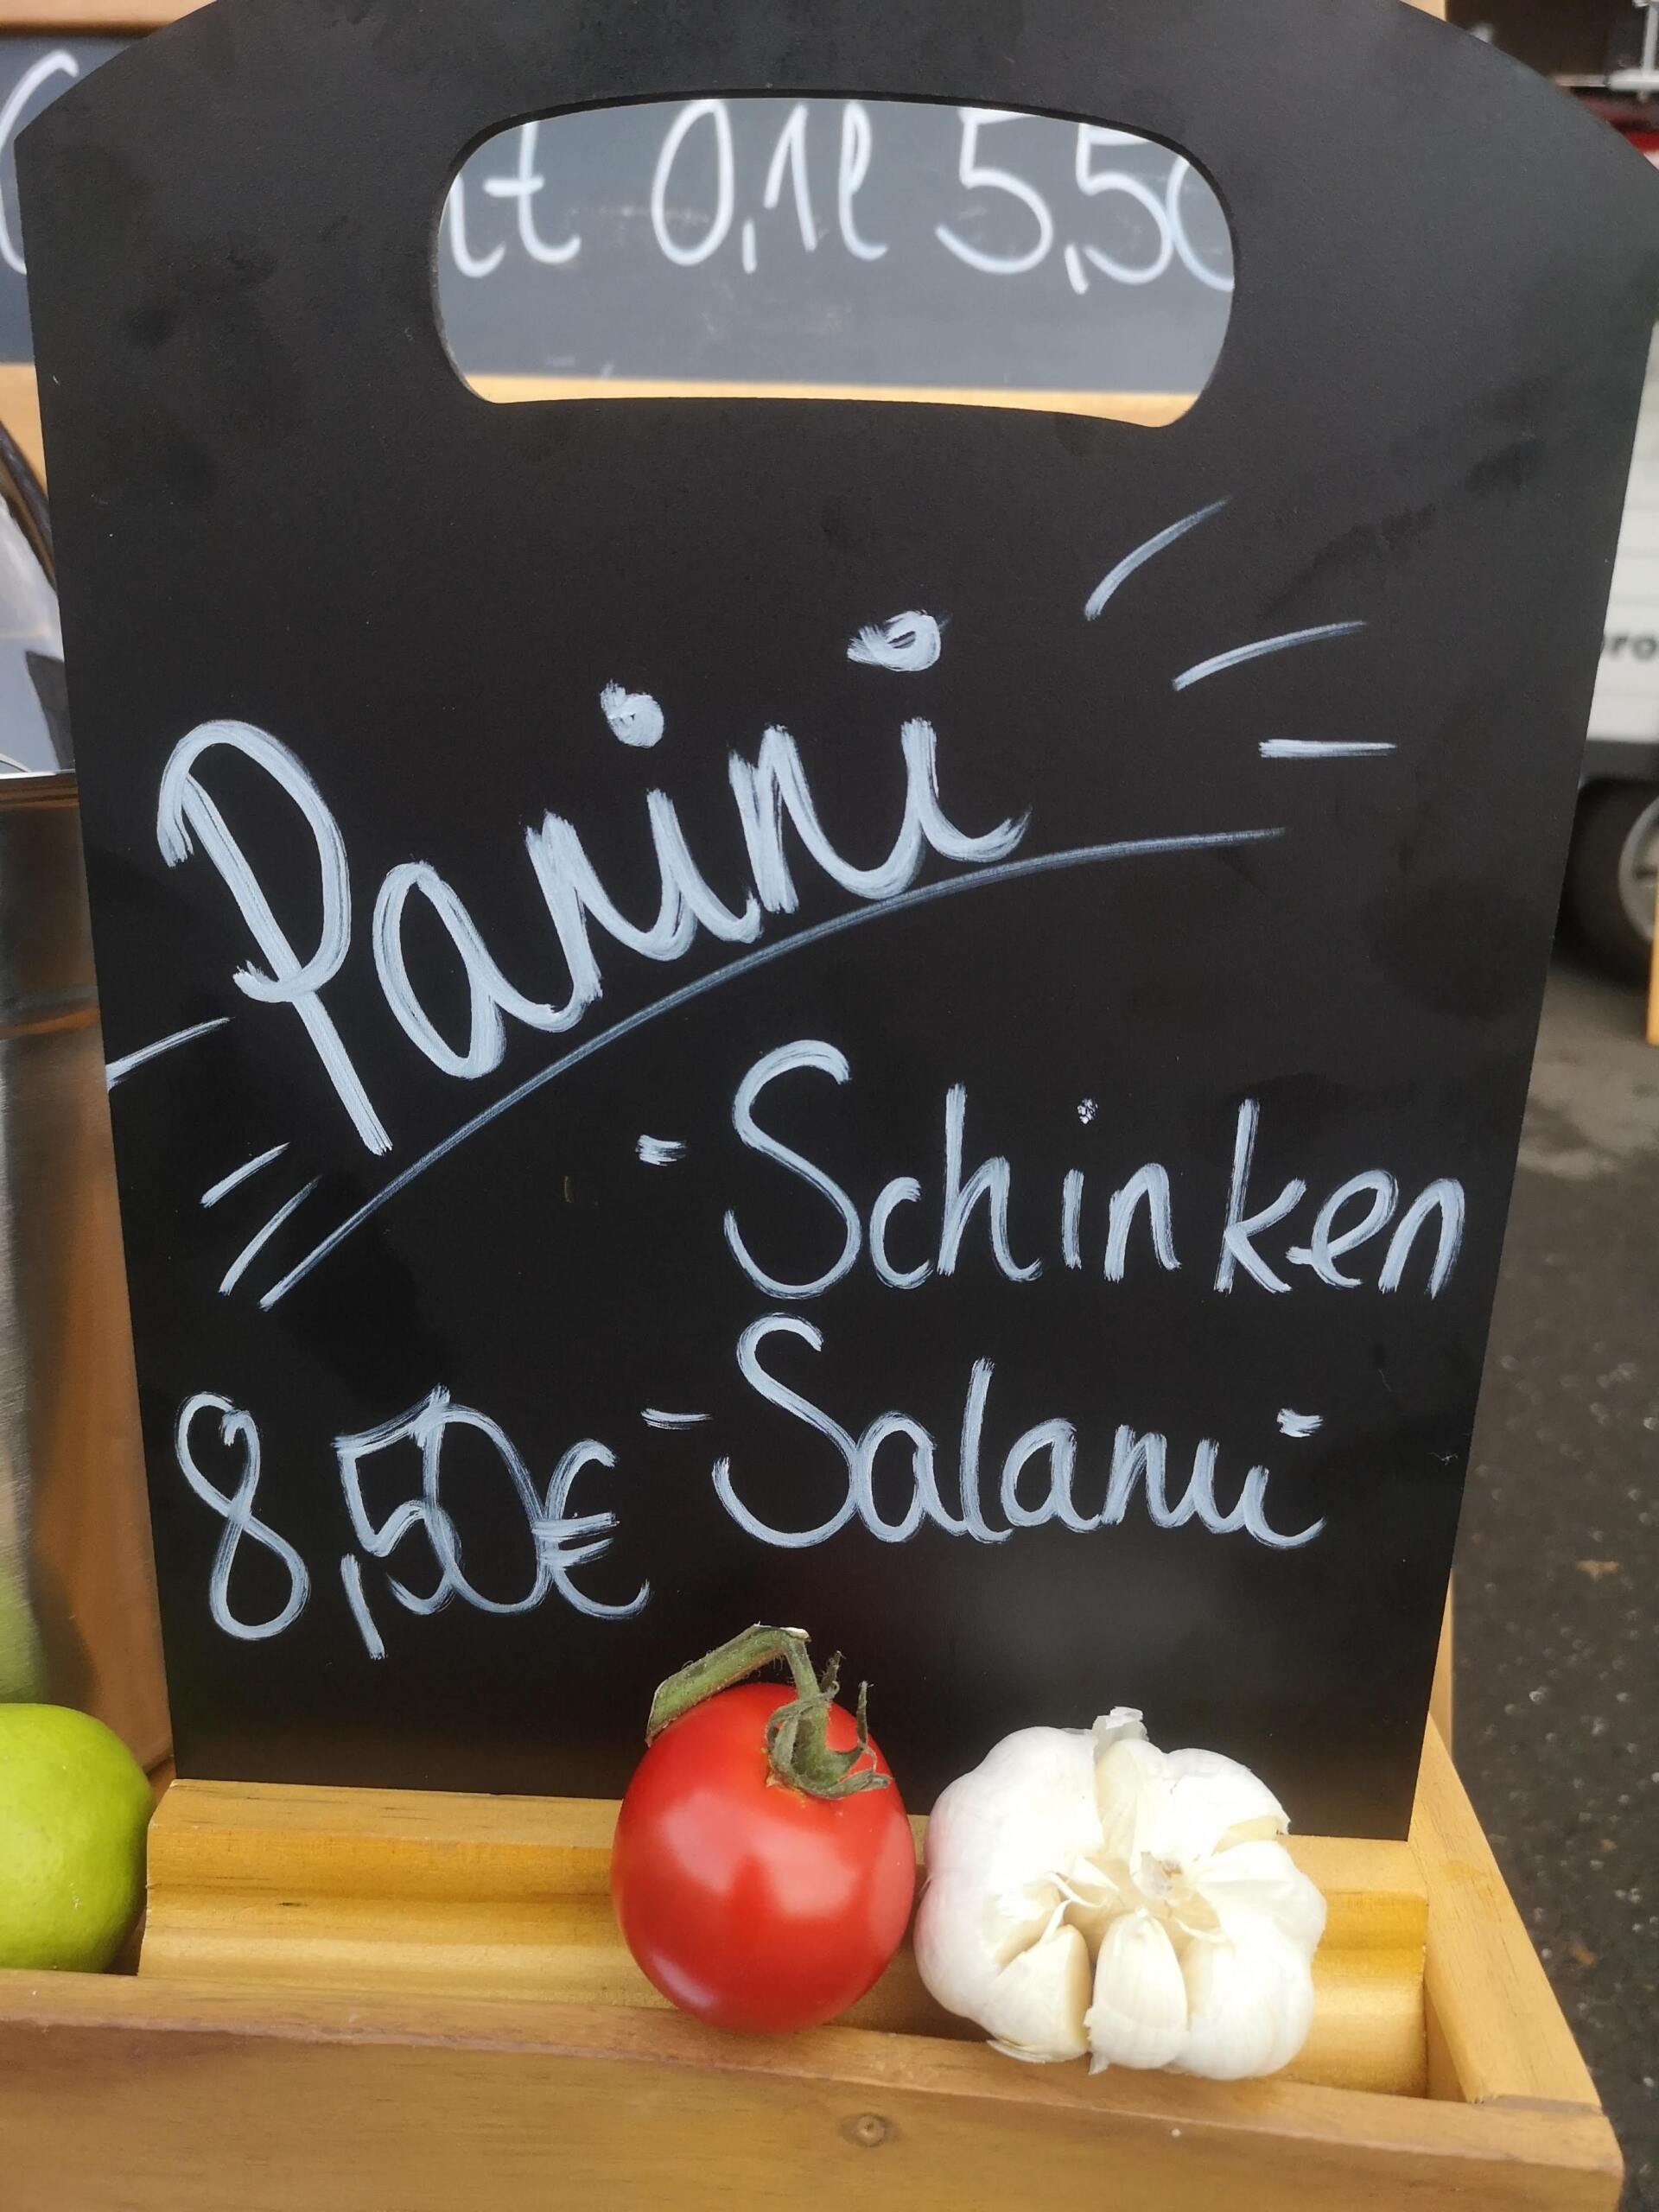 0,1l 5,50
Panini
- Schinken
- Salami
8,50€